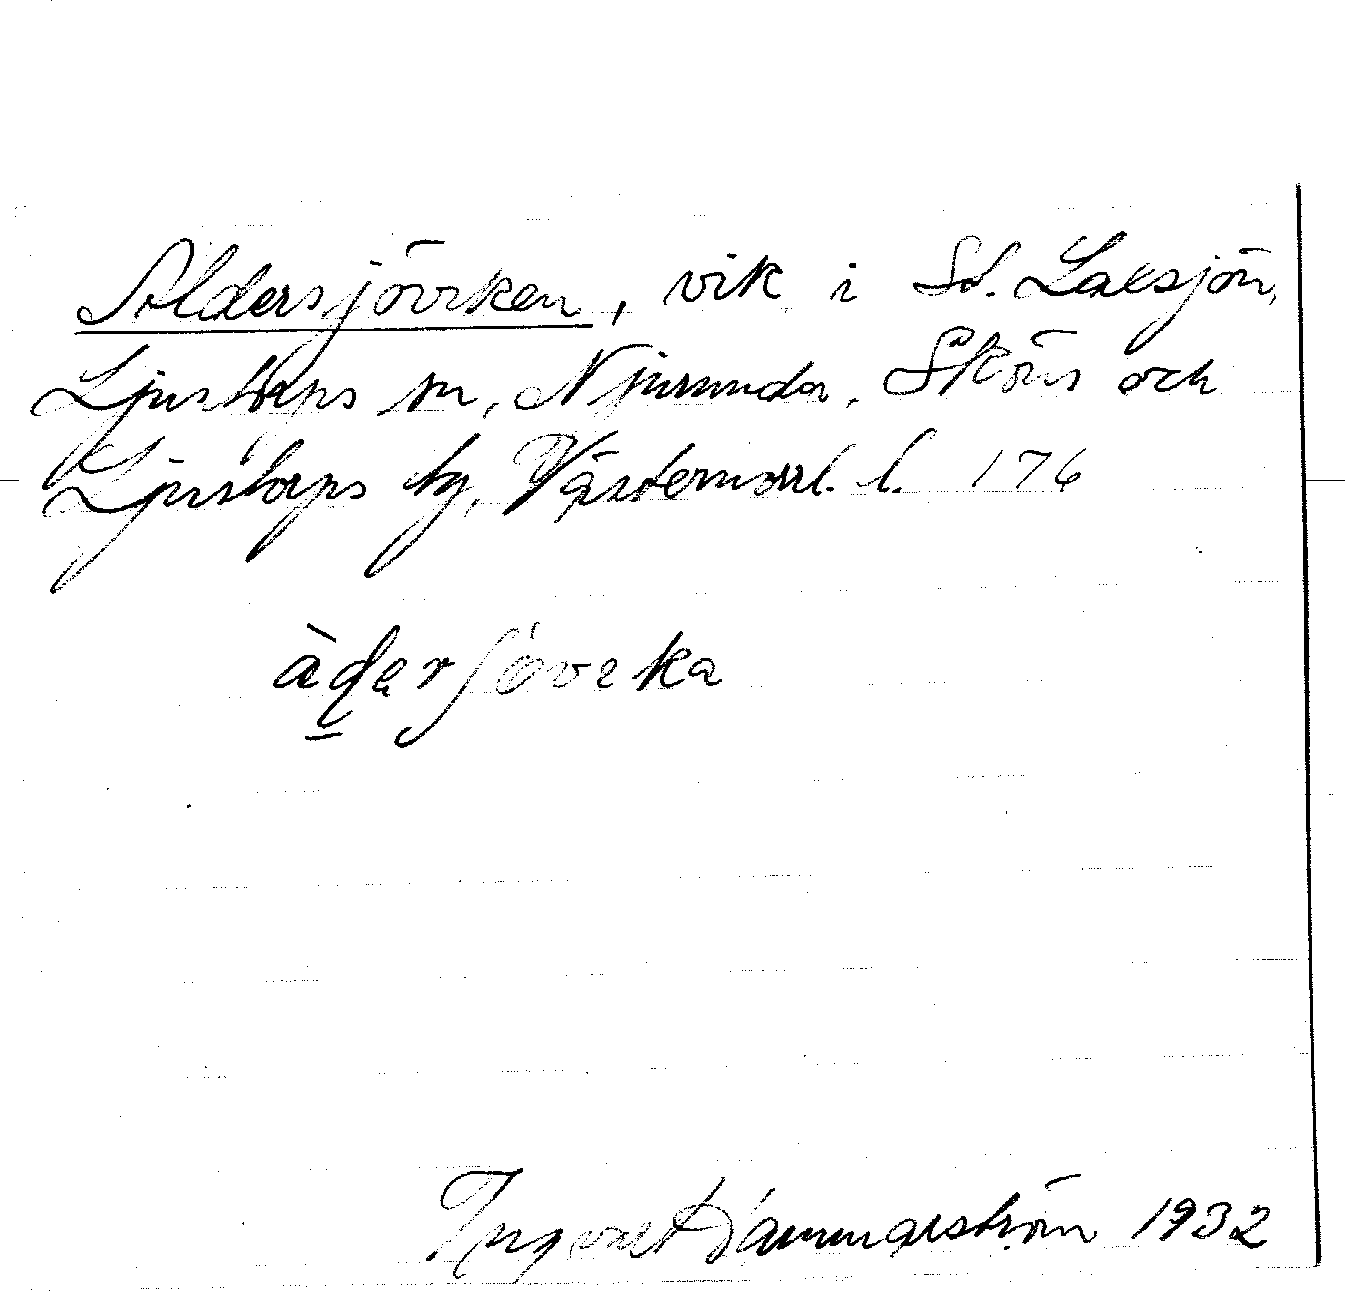 Aldersjöviken, vik i Sd. Laxsjön,
Ljustorps sn, Njurunda, Sköns och
Ljustorps tg, Västernorrl. l. 176
àḍersjövika
Ingvar Hammarström 1932